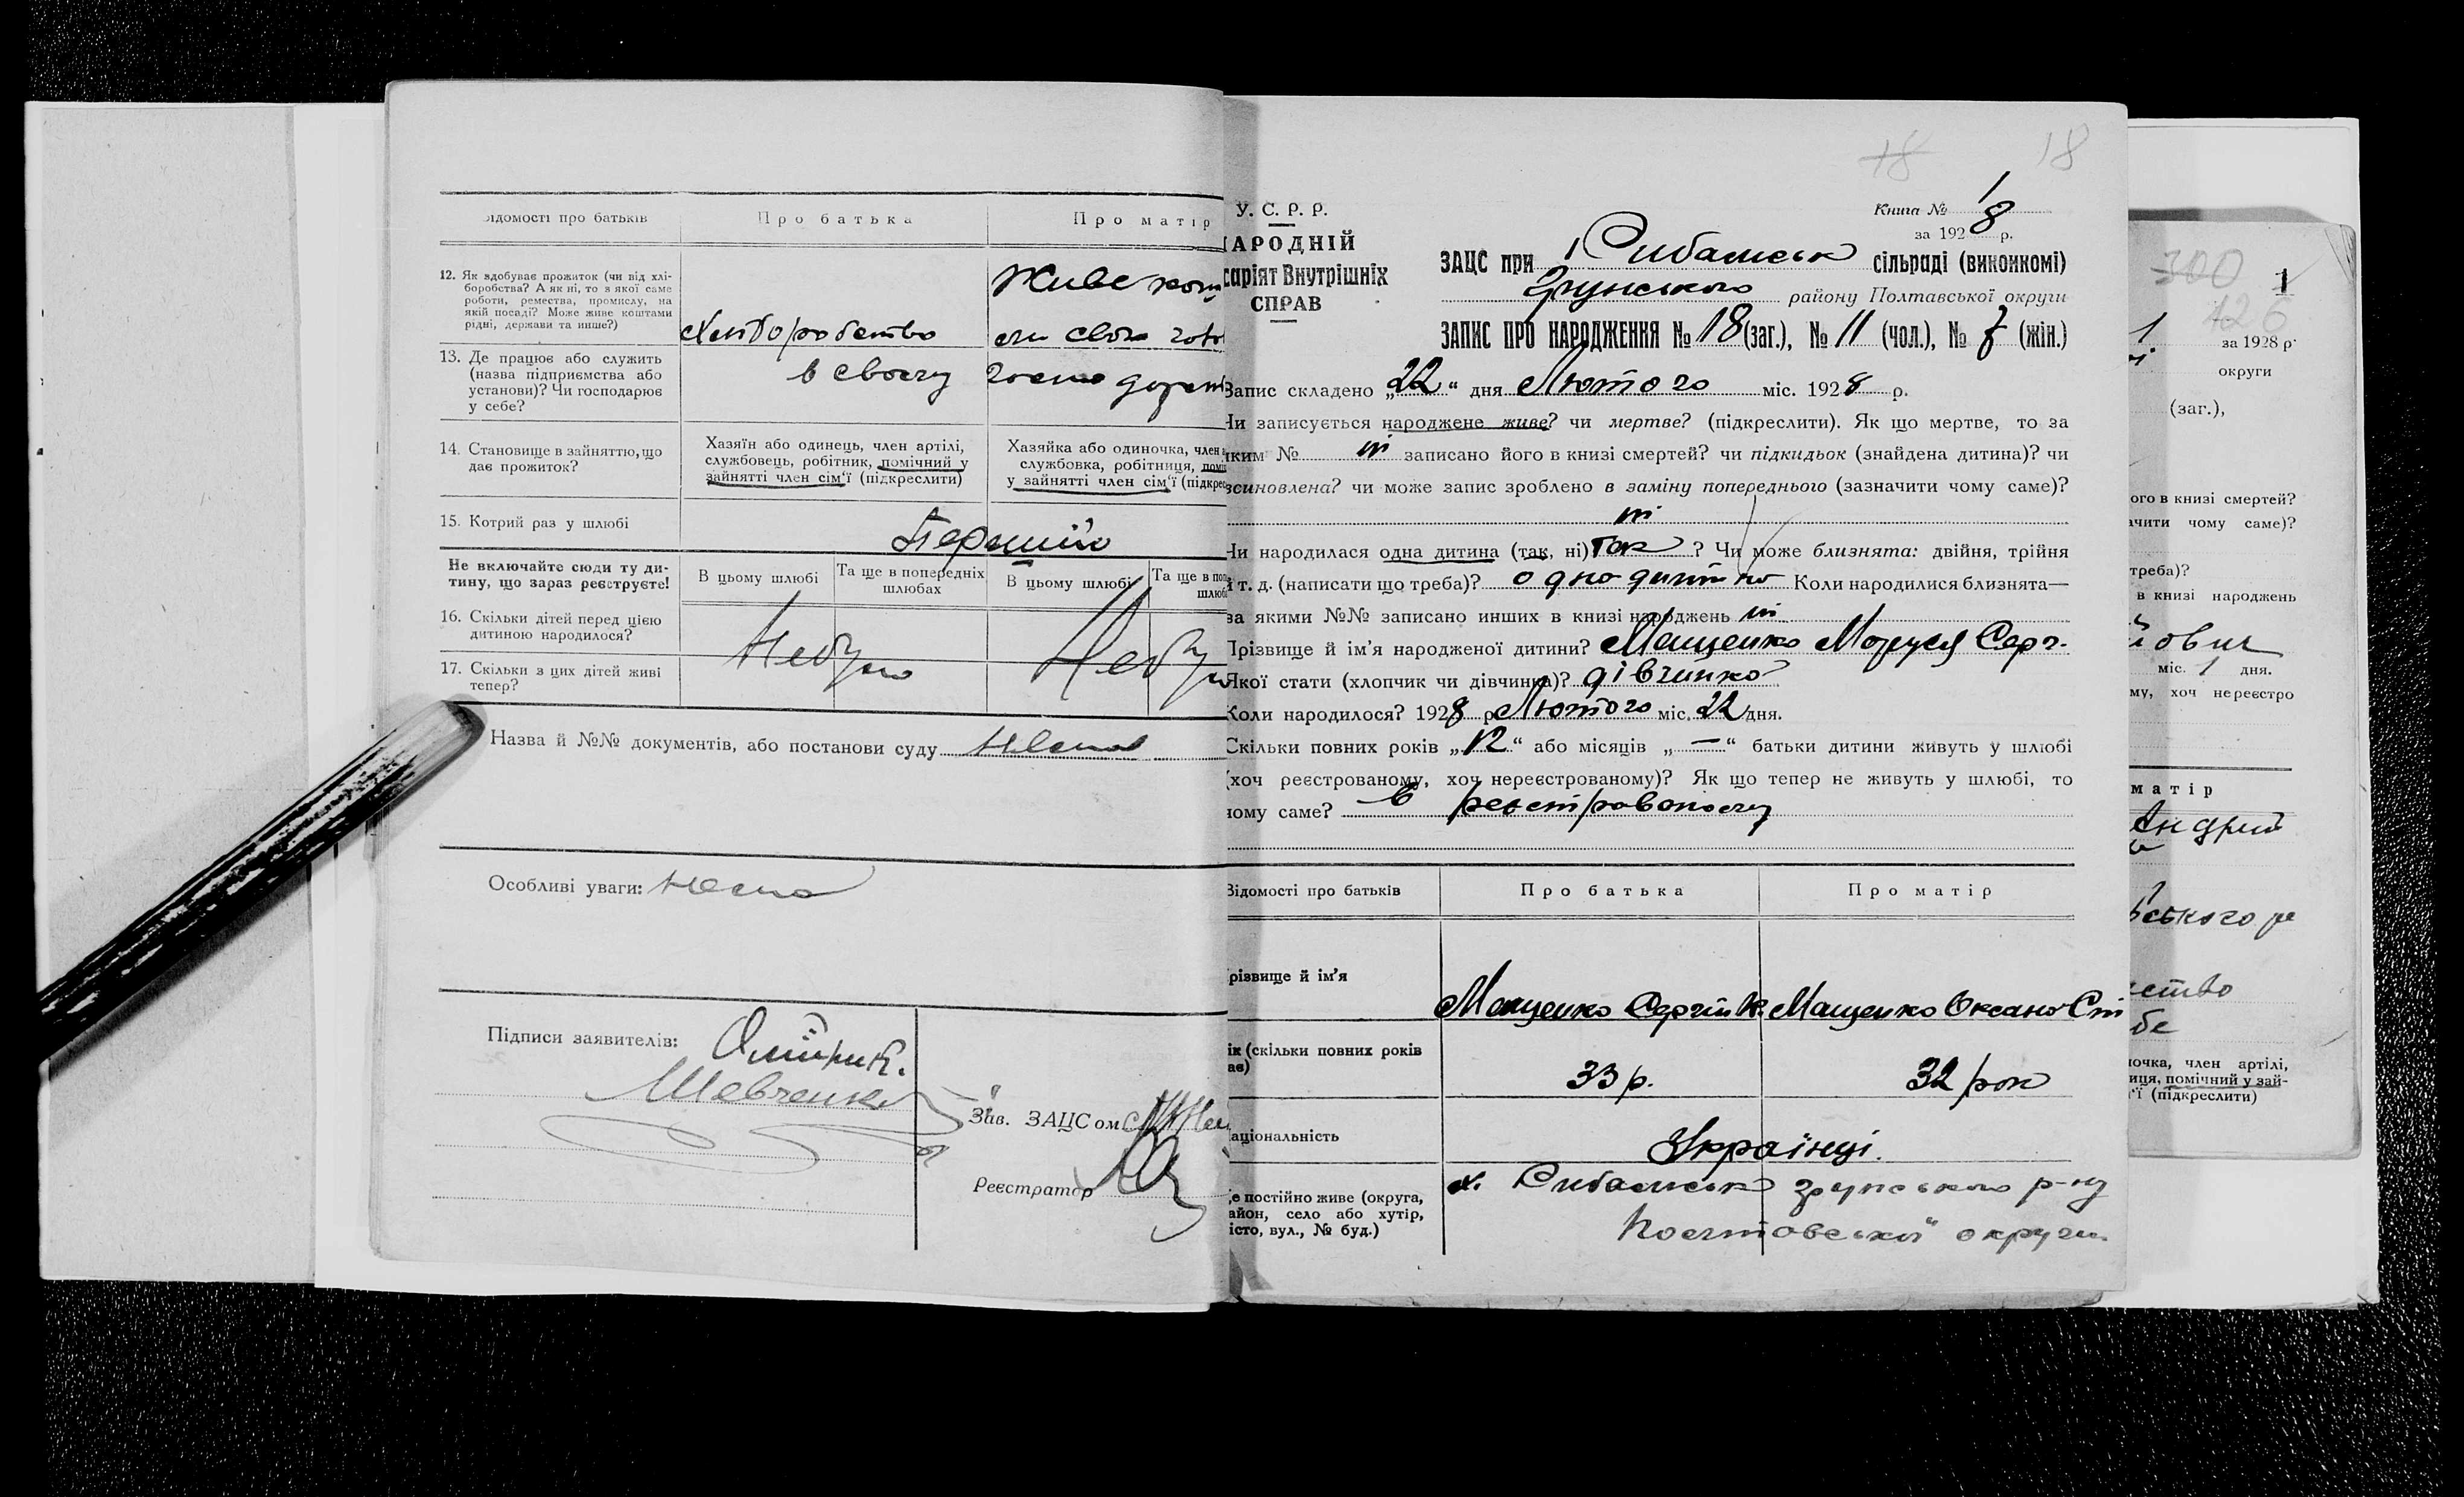 ідомості про батьків
Про батька
Про матір
12. Як здобуває прожиток (чи від хлі-
боробства? А як ні, то з якої саме
роботи, ремества, промислу, на
якій посаді? Може живе коштами
рідні, держави та инше?)
Хліборобство
Живе
13. Де працює або служить
(назва підприємства або
установи)? Чи господарює
у себе?
в своєму
14. Становище в зайняттю, що
дає прожиток?
Хазяїн або одинець, член артілі,
службовець, робітник, помічний у
зайнятті член сім'ї (підкреслити)
Хазяйка або одиночка, член
службовка, робітниця,
у зайнятті член сім'ї (підкрес
15. Котрий раз у шлюбі
Перший
Не включайте сюди ту ди-
тину, що зараз реєструєте!
В цьому шлюбі
Та ще в попередніх
шлюбах
В цьому шлюбі
Та ще в поп
шлюб
16. Скільки дітей перед цією
дитиною народилося?
17. Скільки з цих дітей живі
тепер?
Небуло
Небу
Назва й №№ документів, або постанови суду
Особливі уваги:
Підписи заявителів:
Шевченко
Зав. ЗАЦСом
Реєстратор
18 18
У. С. Р. Р.
АРОДНІЙ
саріят Внутрішніх
СПРАВ
Книга № 1
за 1928 р.
ЗАЦС при сільраді (виконкомі)
Грунського району Полтавської округи
ЗАПИС ПРО НАРОДЖЕННЯ № 18 (заг.), № 11 (чол.), № 7 (жін.)
Запис складено „22" дня Лютого міс. 1928 р.
Чи записується народжене живе? чи мертве? (підкреслити). Як що мертве, то за
яким № ні записано його в книзі смертей? чи підкидьок (знайдена дитина)? чи
всиновлена? чи може запис зроблено в заміну попереднього (зазначити чому саме)?
ні
Чи народилася одна дитина (так, ні) так ? Чи може близнята: двійня, трійня
й т. д. (написати що треба)? одно дитино Коли народилися близнята—
за якими №№ записано инших в книзі народжень ні
Прізвище й ім'я народженої дитини? Мащенко Маруся Серг.
Якої стати (хлопчик чи дівчинка)? дівчинко
Коли народилося? 1928 р. Лютого міс. 22 дня.
Скільки повних років „12" або місяців „—" батьки дитини живуть у шлюбі
(хоч реєстрованому, хоч нереєстрованому)? Як що тепер не живуть у шлюбі, то
чому саме? в реєстрованому
Відомості про батьків
Про батька
Про матір
різвище й ім'я
Мащенко Сергій К.
Мащенко Оксана Ст
ік (скільки повних років
ає)
33 р.
32 рок
аціональність
Українці.
е постійно живе (округа,
айон, село або хутір,
істо, вул., № буд.)
х. грунського р-ну
Полтавської округи
300
1
126
1
за 1928 р.
округи
(заг.),
ого в книзі смертей?
ачити чому саме)?
треба)?
в книзі народжень
йович
міс. 1 дня.
му, хоч нереєстро
матір
ського
ство
бе
ночка, член артілі,
иця, помічний у зай-
'ї (підкреслити)